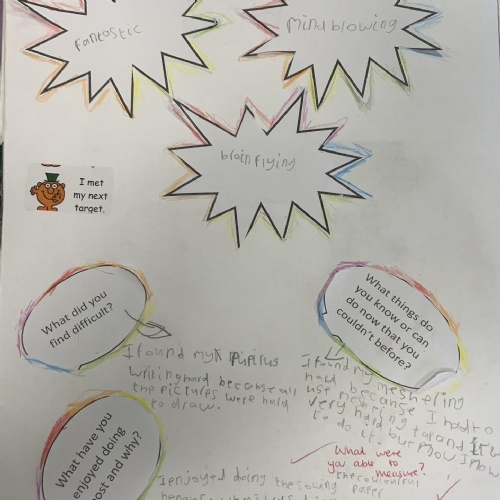 fantastic
mind blowing
brain flying
I met
my next
target.
What did you
find difficult?
What things do
you know or can
do now that you
couldn't before?
I found my
writing hard because all
the pictures were hard
to draw.
I found my
hard because I had to
use
very hard to
to do it. but now I now
What were
you able to
measure?
What have you
enjoyed doing
most and why?
I enjoyed doing the colourful
sowing paper